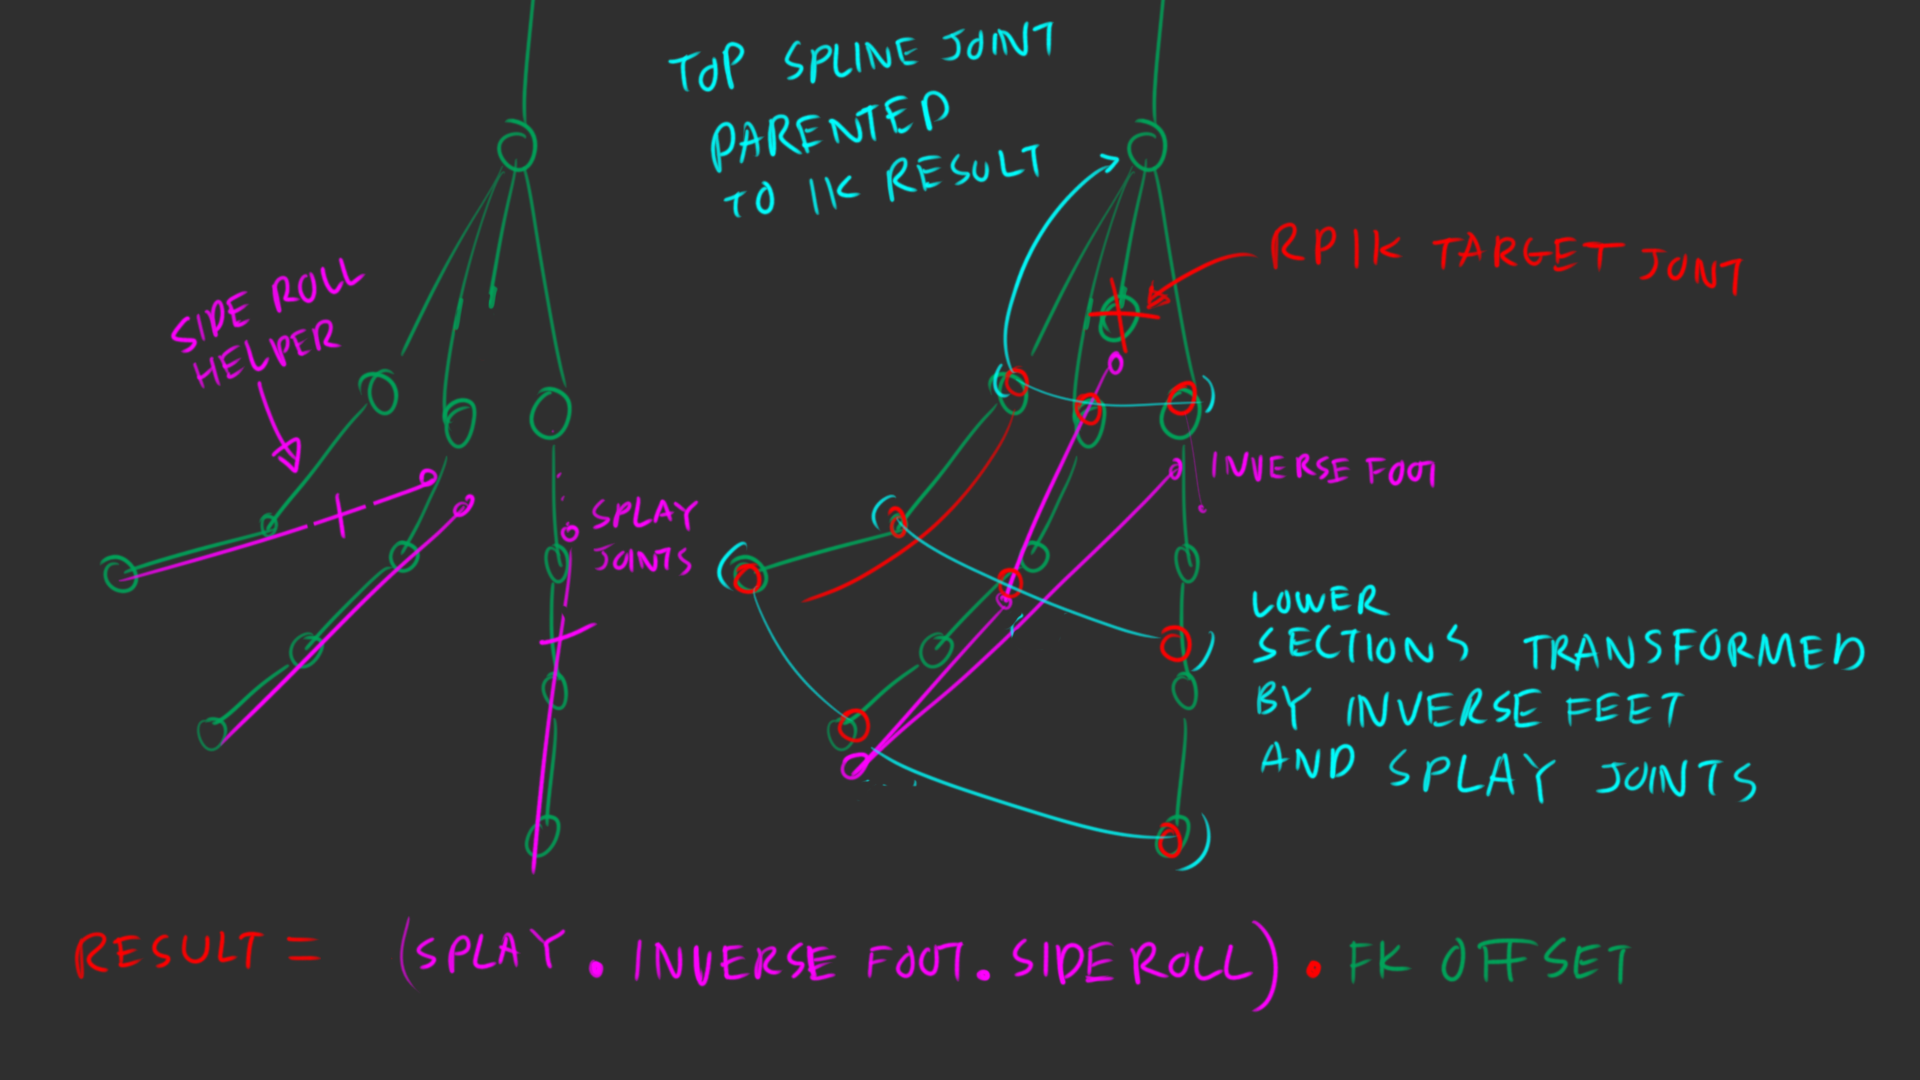 TOP SPLINE JOINT
PARENTED
TO IK RESULT
RPIK TARGET JOINT
SIDE ROLL
HELPER
INVERSE FOOT
SPLAY
JOINTS
LOWER
SECTIONS TRANSFORMED
BY INVERSE FEET
AND SPLAY JOINTS
RESULT = (SPLAY . INVERSE FOOT . SIDEROLL) . FK OFFSET